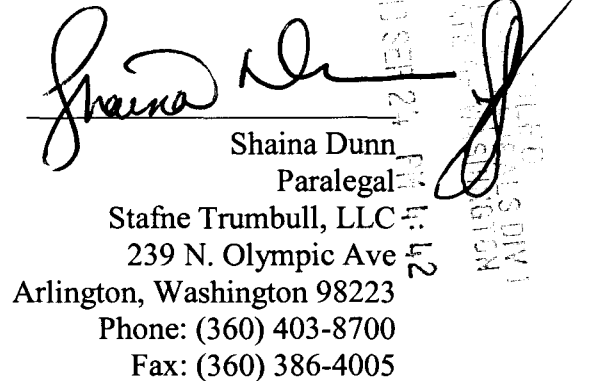 Shaina Dunn
Shaina Dunn
Paralegal
Stafne Trumbull, LLC
239 N. Olympic Ave
Arlington, Washington 98223
Phone: (360) 403-8700
Fax: (360) 386-4005